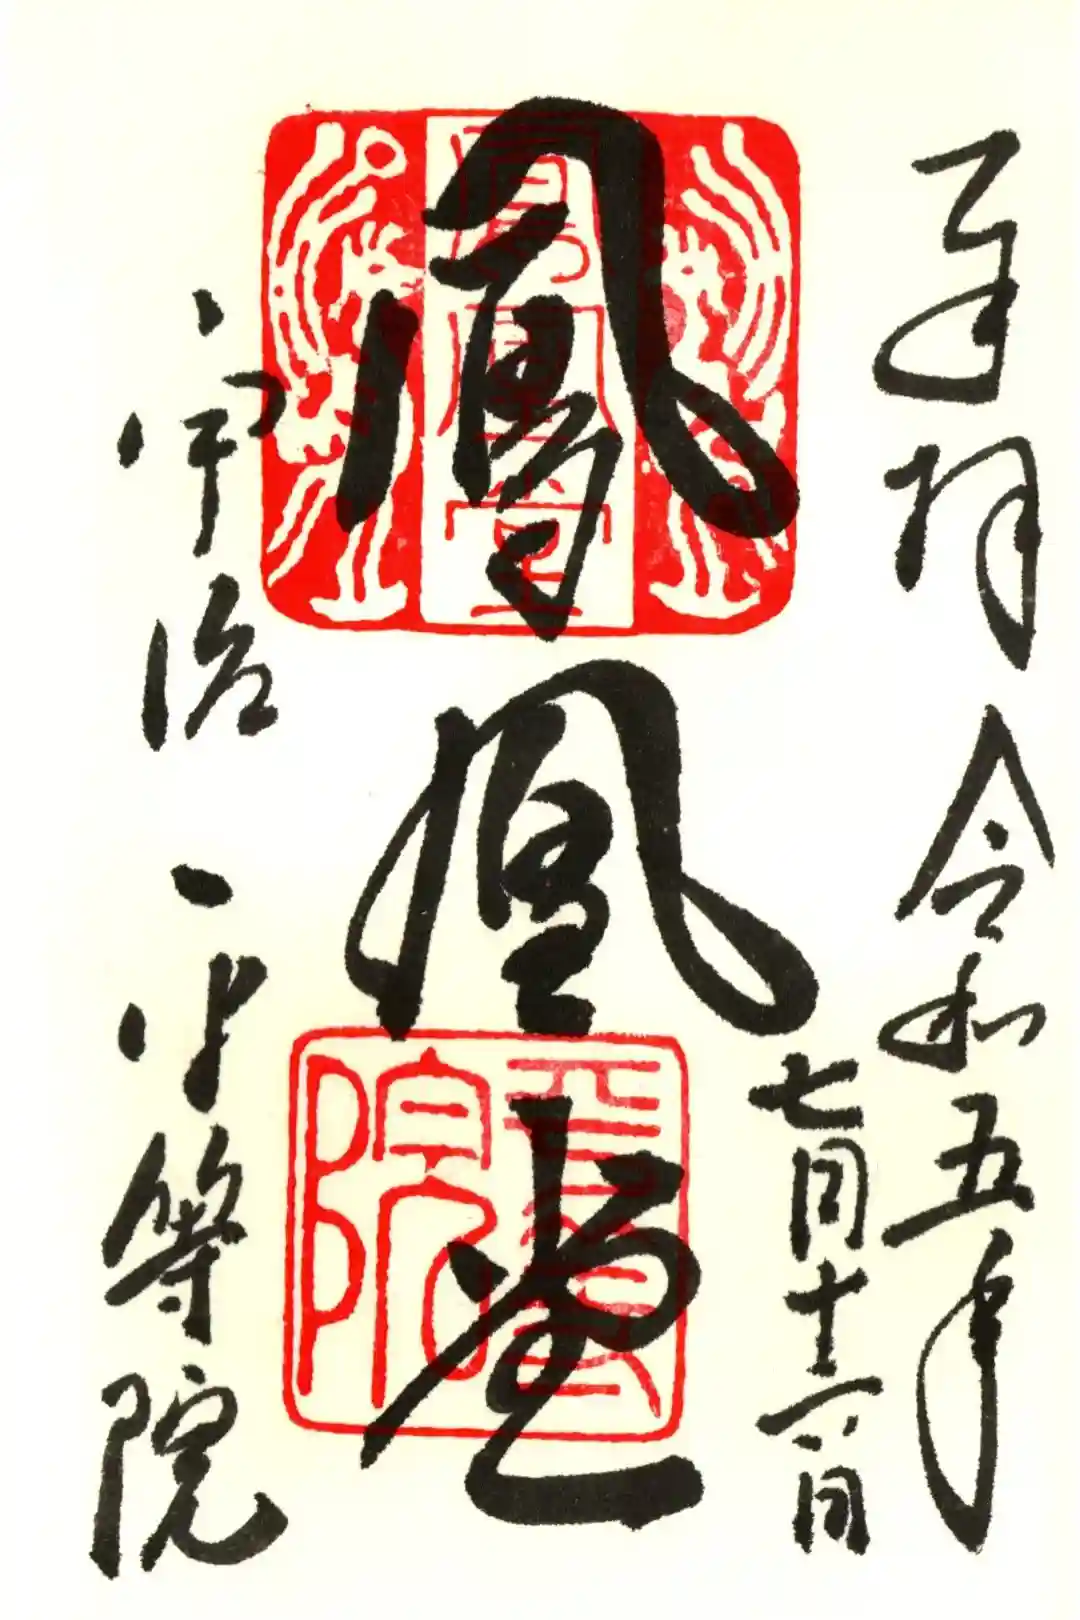 奉拝 令和五年
七月十三日
鳳凰堂
宇治 平等院
鳳凰堂
平等院